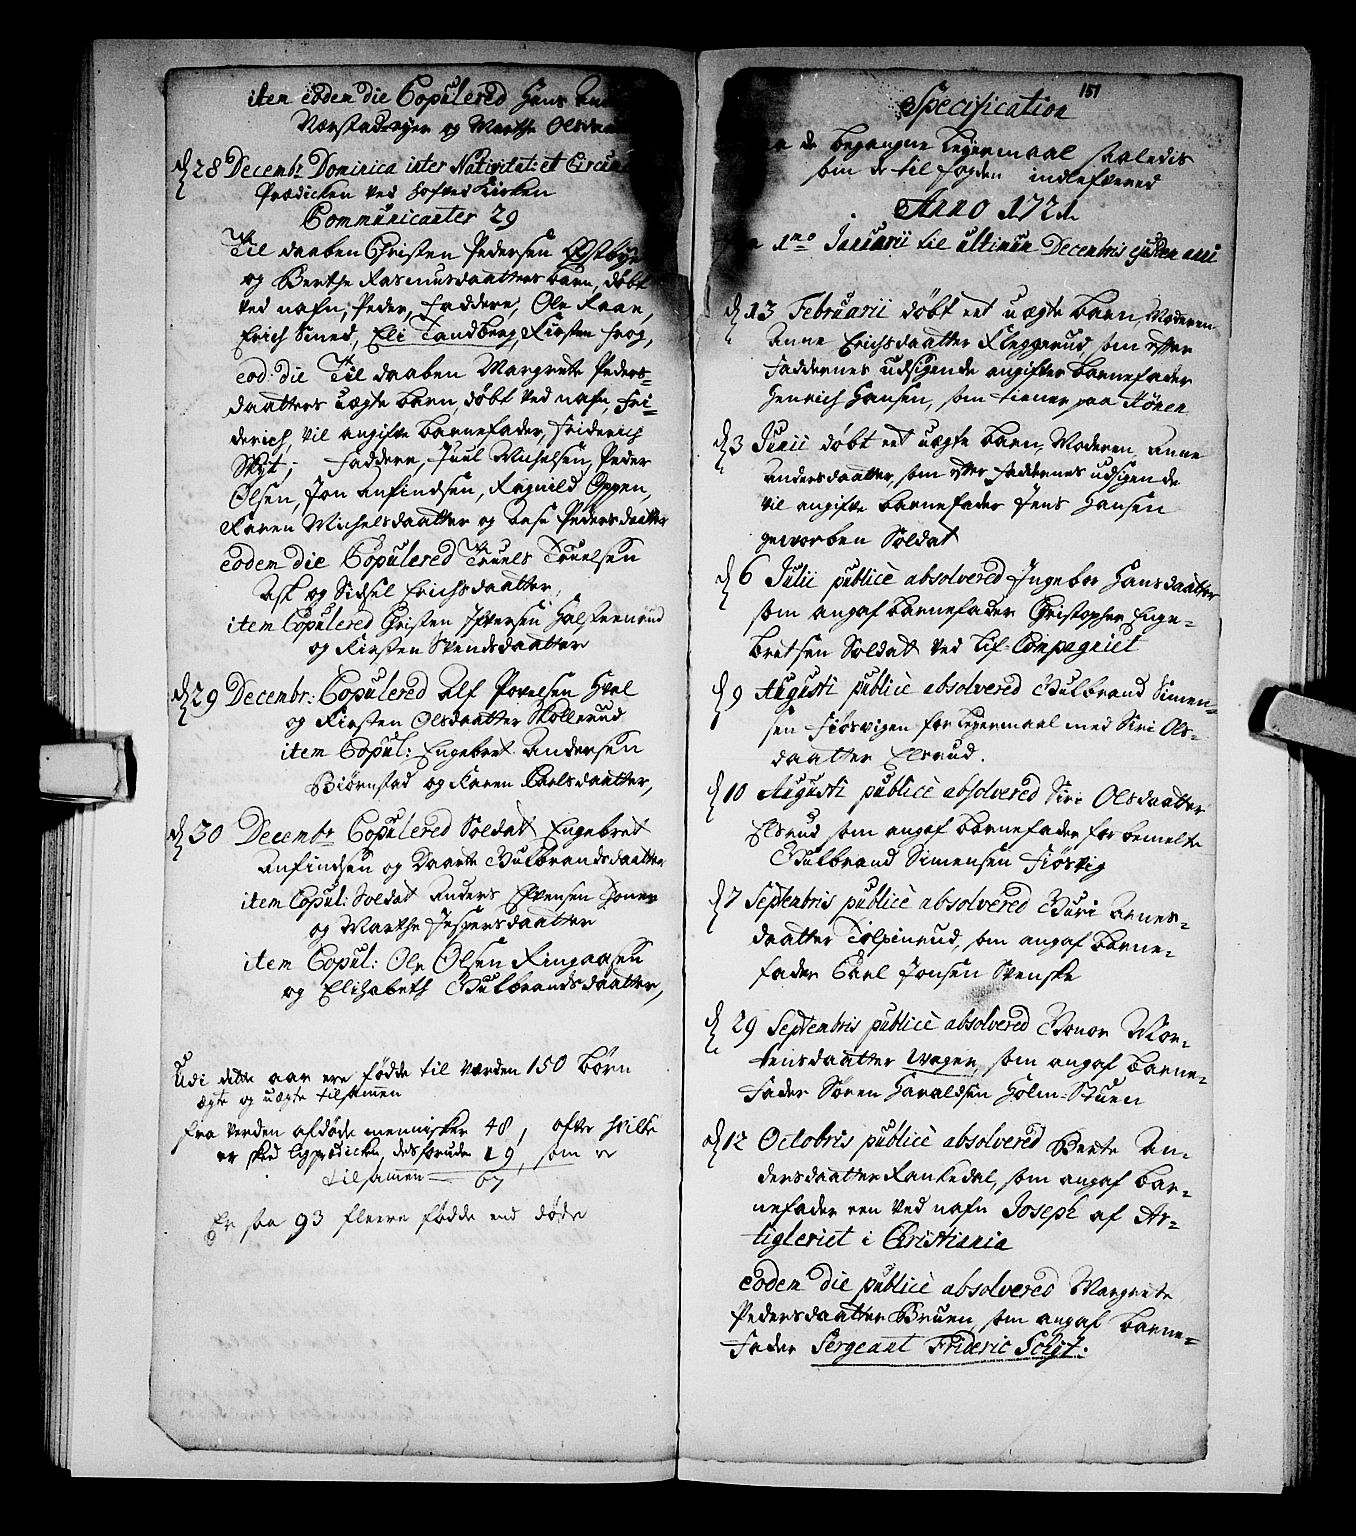 item eodem die Copulered Hans
Norstadeyer og Marthe Olsdaa
d 28 Decembr Dominica inter Nativitat: et Circum
Prædicken ved Hofved Kirken
Communicanter 29
Til daaben Christen Pedersen Østbye
og Berthe Rasmusdaatters barn, døbt
ved nafn, Peder, Faddere, Ole Raae,
Erich Smed, Eli Tandberg, Kirsten Frog,
eod: die Til daaben Margrete Peders-
daatters uægte barn, døbt ved nafn, Fri-
derich, til angifve barnefader, Friderich
Skyt; Faddere, Juul Michelsen, Peder
Olsen, Jon Anfindsen, Ragnild Oppen,
Karen Michelsdaatter og Aase Pedersdaatter
eodem die Copulered Truels Truelsen
Ask og Sidsel Erichsdaatter,
item Copulered Christen Iffversen Halsteenrud
og Kirsten Svendsdaatter
d 29 Decembr: Copulered Alf Povelsen Hval
og Kirsten Olsdaatter Skollerud
item Copul: Engebret Andersen
Biørnstad og Karen Carlsdaatter,
d 30 Decembr Copulered Soldat Engebret
Anfindsen og Daarte Gulbrandsdaatter
item Copul: Soldat Anders Evensen
og Marthe Jespersdaatter
item Copul: Ole Olsen Ringaasen
og Elizabeth Gulbrandsdaatter,
Udi dette aar ere fødde til verden 150 børn
ægte og uægte tilsammen
fra verden afdøde mennisker 48, efter hvilke
er skeed ligprædicken, desforuden 19, som er
tilsamen — 67
Er saa 93 fleere fødde end døde
151
Specification
de begangne Leyermaal saaledis
som de til fogden indlefvered
Anno 1721.
1mo Januarii til ultimum Decembris ejusdem anni
d 13 Februarii døbt eet uægte barn, Moderen
Anne Erichsdaatter Kleggerud, som efter
Faddernes udsigende angifter barnefader
Henrich Hansen, som tiener paa Hønen
d 3 Junii døbt eet uægte barn, Moderen, Anne
Andersdaatter, som efter Faddernes udsigende
til angifve barnefader Jens Hansen
geworben Soldat
d 6 Julii publicè absolvered Ingebor Hansdaatter
som angaf barnefader Christopher Enge-
bretsen Soldat ved Lif-Compagniet
d 9 Augusti publicè absolvered Gulbrand Simen-
sen Fiøsvigen for Leyermaal med Siri Ols-
daatter Elsrud.
d 10 Augusti publicè absolvered Siri Olsdaatter
Elsrud som angaf barnefader for bemelte
Gulbrand Simensen Fiøsvig
d 7 Septembris publicè absolvered Guri Arnes-
daatter Tolpinrud, som angaf barne-
fader Carl Jonsen Svenske
d 29 Septembris publicè absolvered Gonor Mor-
tensdaatter Wager, som angaf barne-
fader Søren Haraldsen Holm-Stuen
d 12 Octobris publicè absolvered Berte An-
dersdaatter Rankedal, som angaf bar-
nefader een ved nafn Joseph af Ar-
tigleriet i Christiania
eodem die publicè absolvered Margrete
Pedersdaatter Bruen, som angaf barne-
fader Sergeant Frideric Schyt.